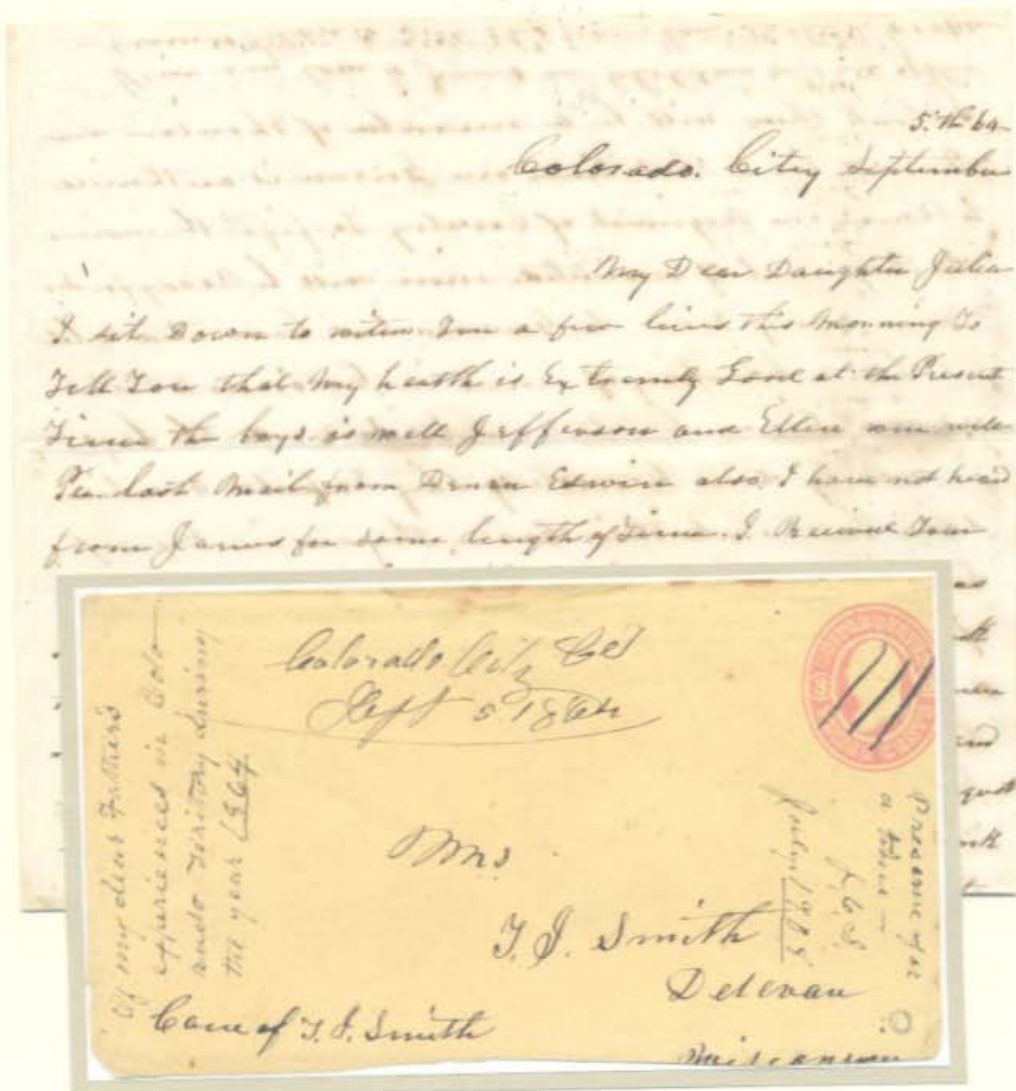 5.th 64
Colorado. City September
My Dear Daughter Julia
I sit Down to write You a few lines this Morning To
Tell You that My health is Extremely Good at the Present
Time the boys is well Jefferson and Ellen was well
Per last Mail from Denver Edwin also I have not heard
from James for some length of Time. I Received Your
as
and
Colorado City CT
Sept 5 1864
Mrs
T. J. Smith
Delevan
Wisconsin
Care of T. J. Smith
Of my dear Father's
experiences in Colo-
rado Territory during
the year 1864
Preserve for
a
J. C. S.
1908